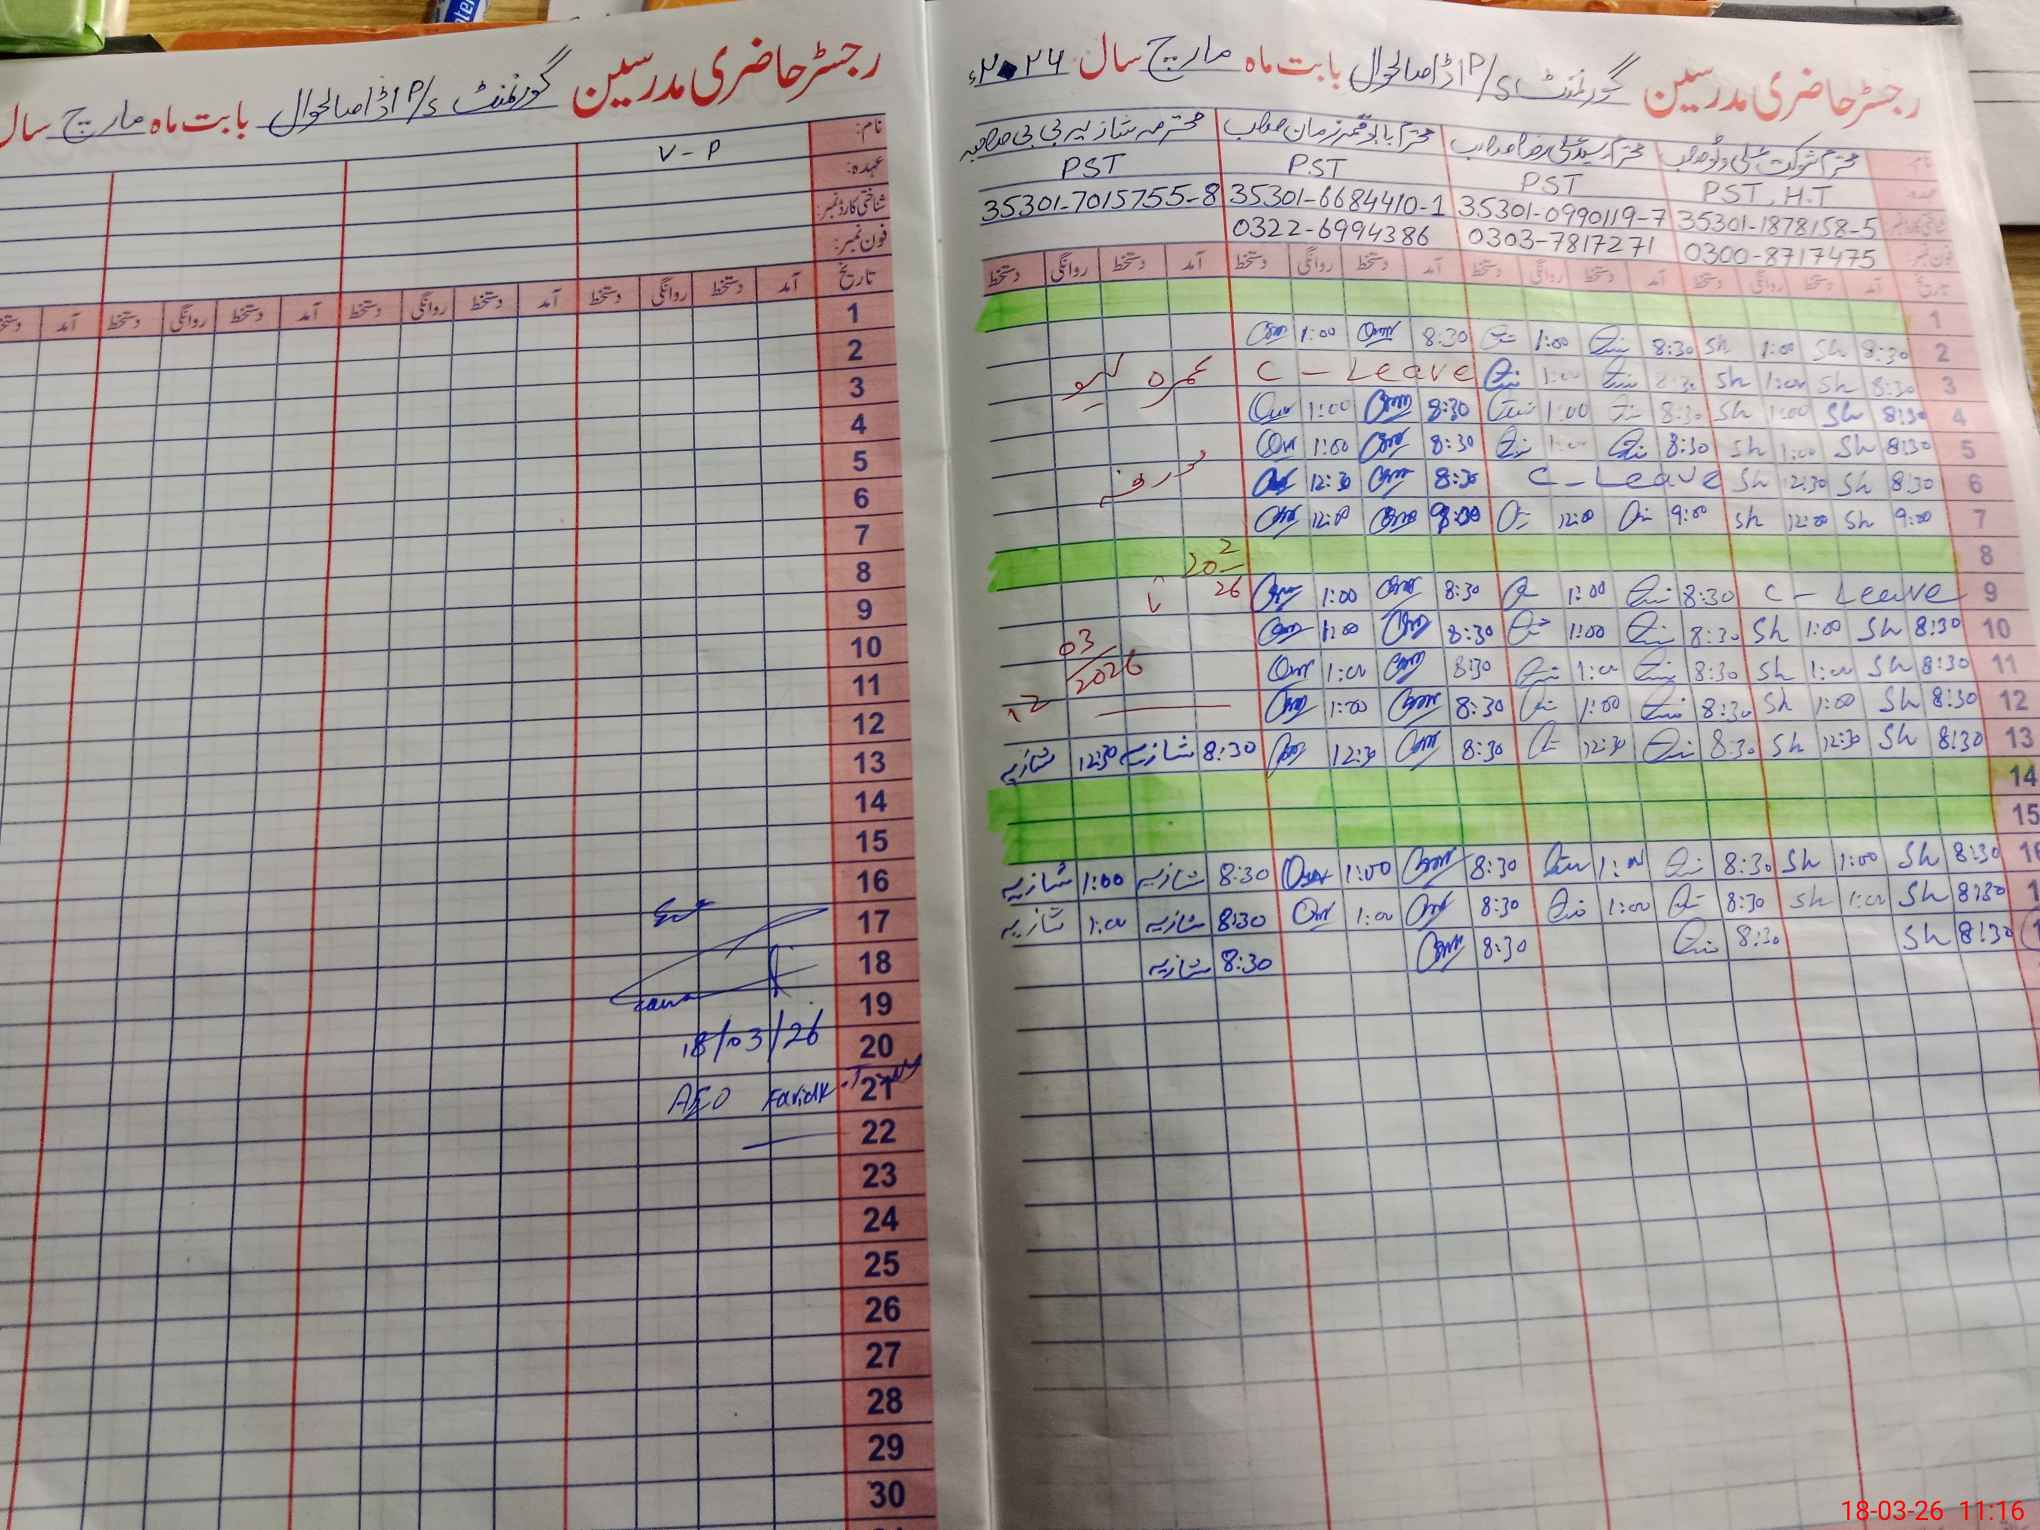 رجسٹر حاضری مدرسین گورنمنٹ P/S اڈا صالحوال بابت ماہ مارچ سال ۲۰۲۶ء
نام: محترم شوکت علی وٹو صاحب محترم سید علی رضا صاحب محترم بابو قمر زمان صاحب محترمہ شازیہ بی بی صاحبہ
عہدہ: PST, H.T PST PST PST
شناختی کارڈ نمبر: 35301-1878158-5 35301-0990119-7 35301-6684410-1 35301-7015755-8
فون نمبر: 0300-8717475 0303-7817271 0322-6994386
تاریخ آمد دستخط روانگی دستخط آمد دستخط روانگی دستخط آمد دستخط روانگی دستخط آمد دستخط روانگی دستخط
1
2 8:30 Sh 1:00 Sh 8:30 1:00 8:30 1:00
3 8:30 Sh 1:00 Sh 8:30 1:00 C - Leave عمرہ لیو
4 8:30 Sh 1:00 Sh 8:30 1:00 8:30 1:00
5 8:30 Sh 1:00 Sh 8:30 1:00 8:30 1:00
6 8:30 Sh 12:30 Sh C - Leave 8:30 12:30 مورخہ
7 9:00 Sh 12:00 Sh 9:00 12:00 9:00 12:00
8 20 2
9 C - Leave 8:30 1:00 8:30 1:00 26 تا
10 8:30 Sh 1:00 Sh 8:30 1:00 8:30 1:00 03
11 8:30 Sh 1:00 Sh 8:30 1:00 8:30 1:00 2026
12 8:30 Sh 1:00 Sh 8:30 1:00 8:30 1:00 12
13 8:30 Sh 12:30 Sh 8:30 12:30 8:30 12:30 8:30 شازیہ 12:30 شازیہ
14
15
16 8:30 Sh 1:00 Sh 8:30 1:00 8:30 1:00 8:30 شازیہ 1:00 شازیہ
1 8:30 Sh 1:00 Sh 8:30 1:00 8:30 1:00 8:30 شازیہ 1:00 شازیہ
1 8:30 Sh 8:30 8:30 8:30 شازیہ
رجسٹر حاضری مدرسین گورنمنٹ P/S اڈا صالحوال بابت ماہ مارچ سال
نام: V-P
عہدہ:
شناختی کارڈ نمبر:
فون نمبر:
تاریخ آمد دستخط روانگی دستخط آمد دستخط روانگی دستخط آمد دستخط روانگی دستخط آمد
1
2
3
4
5
6
7
8
9
10
11
12
13
14
15
16
17
18
19
20 18/03/26
21 AEO
22
23
24
25
26
27
28
29
30
18-03-26 11:16